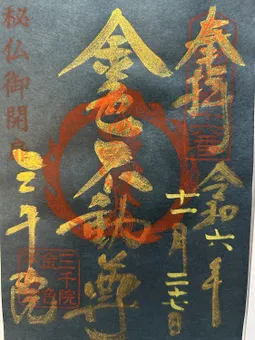 奉拝
令和六年
十一月二十七日
金色不動尊
三千院
秘仏御開
三千院
金色